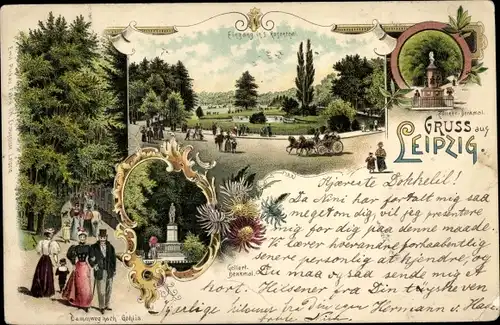 Eingang in's Rosenthal.
Zöllner-Denkmal.
GRUSS aus
LEIPZIG.
Kjæreste Dokkelil!
Da Nini har fortalt mig saa
meget om dig, vil jeg præsentere
mig for dig paa denne maade.
Vi lærer hverandre forhaabentlig
senere personlig at kjende, og
Du maa og saa sende mig et
kort. Hilsener fra Din tyske ven
Hermann v.
Gellert-
Denkmal
Dammweg nach Gohlis